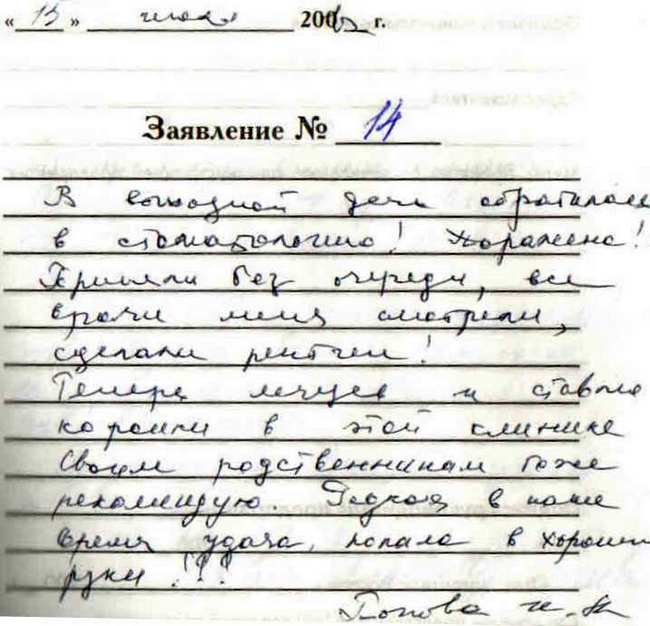 « 15 » июля 200 г.
Заявление № 14
В выходной день обратилась
в стоматологию! Поражена!
Приняли без очереди, все
врачи меня смотрели,
сделали рентген!
Теперь лечусь и ставлю
коронки в этой клинике
Своим родственникам тоже
рекомендую. Редкая в наше
время удача, попала в хорошие
руки!!!
Попова И. А